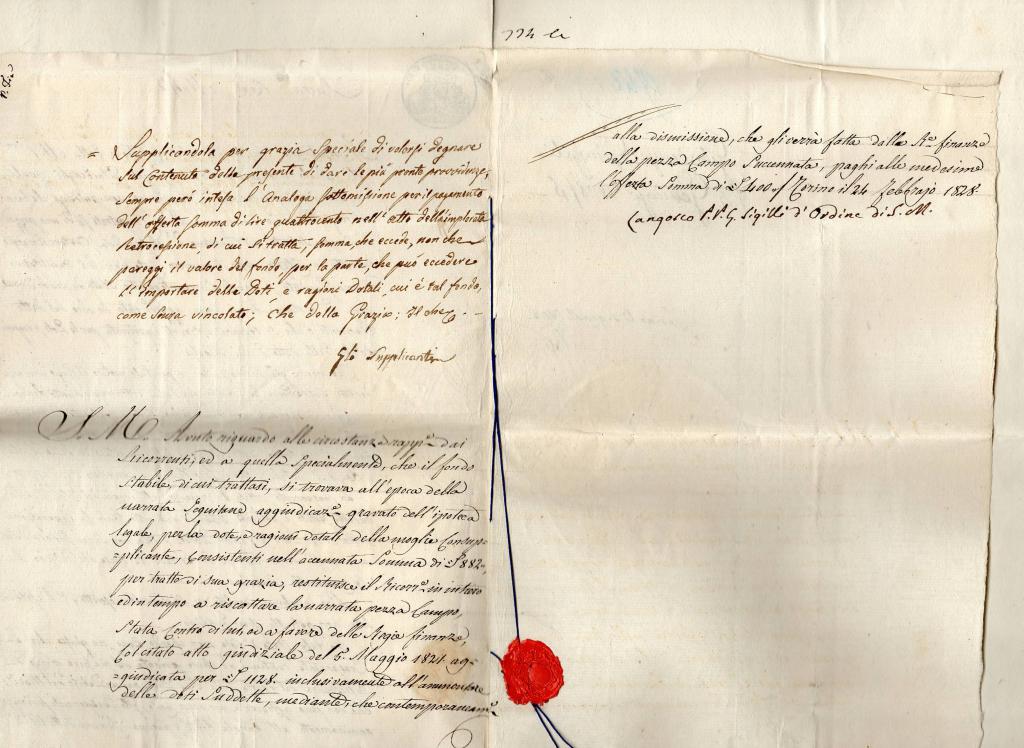 = Supplicandola per grazia Speciale di volersi degnare
Sul Contenuto della presente di dare le più pronte provvidenze,
sempre però intesa l'analoga Sottomissione per il pagamento
dell'offerta Somma di lire quattrocento nell'atto dell'implorata
Retrocessione, di cui si tratta, Somma, che eccede, non che
pareggi il valore del fondo, per la parte, che può eccedere
l'importare delle Doti, e ragioni Dotali, cui è tal fondo,
come Sovra vincolato; Che della Grazia; Il che
Gli Supplicanti
S. M. Avuto riguardo alle circostanze rapp.e dai
Ricorrenti, ed a quella Specialmente, che il fondo
Stabile, di cui trattasi, si trovava all'epoca della
narrata Seguitane aggiudicaz.e gravato dell'ipoteca
legale, per la dote, e ragioni dotali della moglie Consup=
=plicante, Consistenti nell'accennata Somma di £ 882,
per tratto di sua grazia, restituisce il Ricorr.e in intiero
ed in tempo a riscattare la narrata pezza Campo,
Stata Contro di lui, ed a favore delle Regie finanze,
Col citato atto giudiziale del 5. Maggio 1821. ag=
=giudicata per £ 1128. inclusivamente all'ammontare
delle doti Suddette, mediante, che contemporaneam.e
774
alla dismissione, che gli verrà fatta dalle R.e finanze
della pezza Campo Succennata, paghi alle medesime
l'offerta Somma di £ 400. Torino il 24 febbrajo 1828.
Langosco P.P.G. Sigilli d'Ordine di S. M.